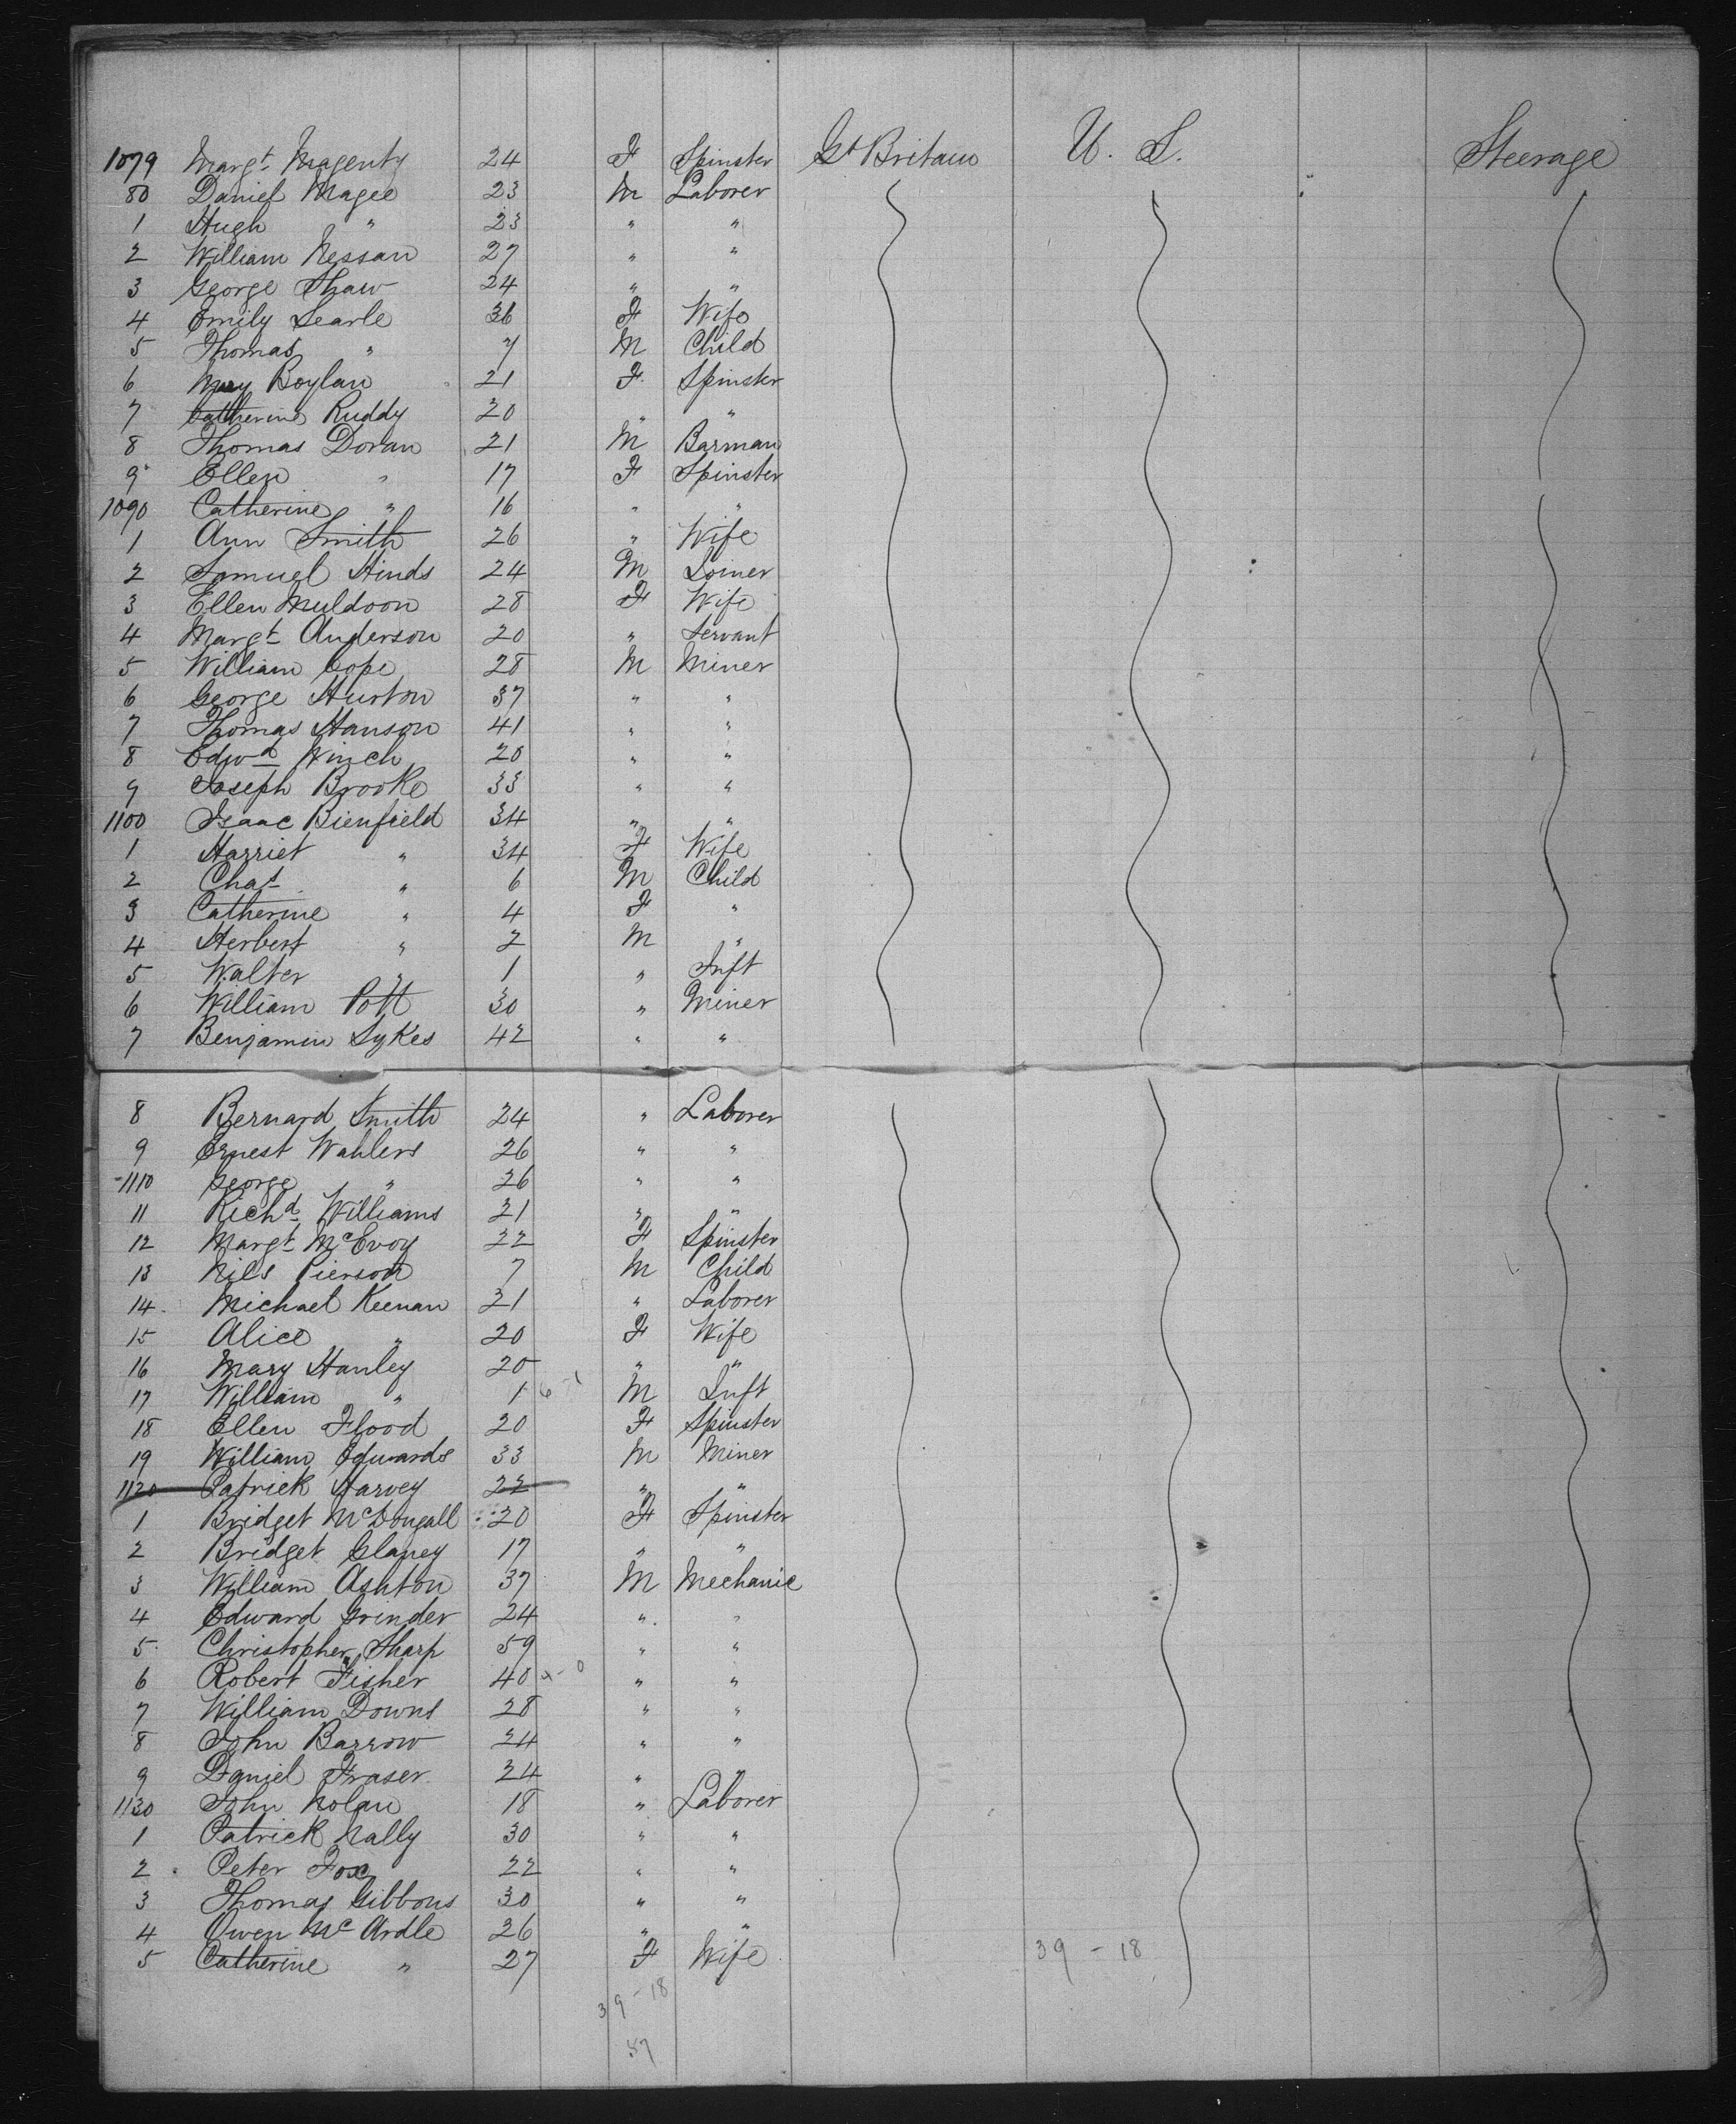 1079 Margt. Magenty 24 F Spinster Gt Britain U. S. Steerage
80 Daniel Magee 23 M Laborer
1 Hugh " 23 " "
2 William Nessan 27 " "
3 George Shaw 24 " "
4 Emily Searle 36 F Wife
5 Thomas " 7 M Child
6 Mary Boylan 21 F Spinster
7 Catherine Ruddy 20 " "
8 Thomas Doran 21 M Barman
9 Ellen " 17 F Spinster
1090 Catherine " 16 " "
1 Ann Smith 26 " Wife
2 Samuel Hinds 24 M Joiner
3 Ellen Muldoon 28 F Wife
4 Margt Anderson 20 " Servant
5 William Cope 28 M Miner
6 George Hurton 37 " "
7 Thomas Hanson 41 " "
8 Edwd Winch 20 " "
9 Joseph Brooke 33 " "
1100 Isaac Bienfield 34 " "
1 Harriet " 34 F Wife
2 Chas " 6 M Child
3 Catherine " 4 F "
4 Herbert " 2 M "
5 Walter " 1 " Inft
6 William Pott 30 " Miner
7 Benjamin Sykes 42 " "
8 Bernard Smith 24 " Laborer
9 Ernest Wahlers 26 " "
1110 George " 26 " "
11 Richd Williams 21 " "
12 Margt McEvoy 22 F Spinster
13 Nils Pierson 7 M Child
14 Michael Keenan 21 " Laborer
15 Alice " 20 F Wife
16 Mary Hanley 20 " "
17 William " 1 M Inft
18 Ellen Flood 20 F Spinster
19 William Edwards 33 M Miner
1120 Patrick Harvey 22 " "
1 Bridget McDougall 20 F Spinster
2 Bridget Clancy 17 " "
3 William Ashton 37 M Mechanic
4 Edward Grinder 24 " "
5 Christopher Sharp 59 " "
6 Robert Fisher 40 " "
7 William Downs 28 " "
8 John Barrow 24 " "
9 Daniel Fraser 24 " "
1130 John Nolan 18 " Laborer
1 Patrick Nally 30 " "
2 Peter Fox 22 " "
3 Thomas Gibbons 30 " "
4 Owen Mc Ardle 26 " "
5 Catherine " 27 F Wife 39 - 18
39 - 18
57